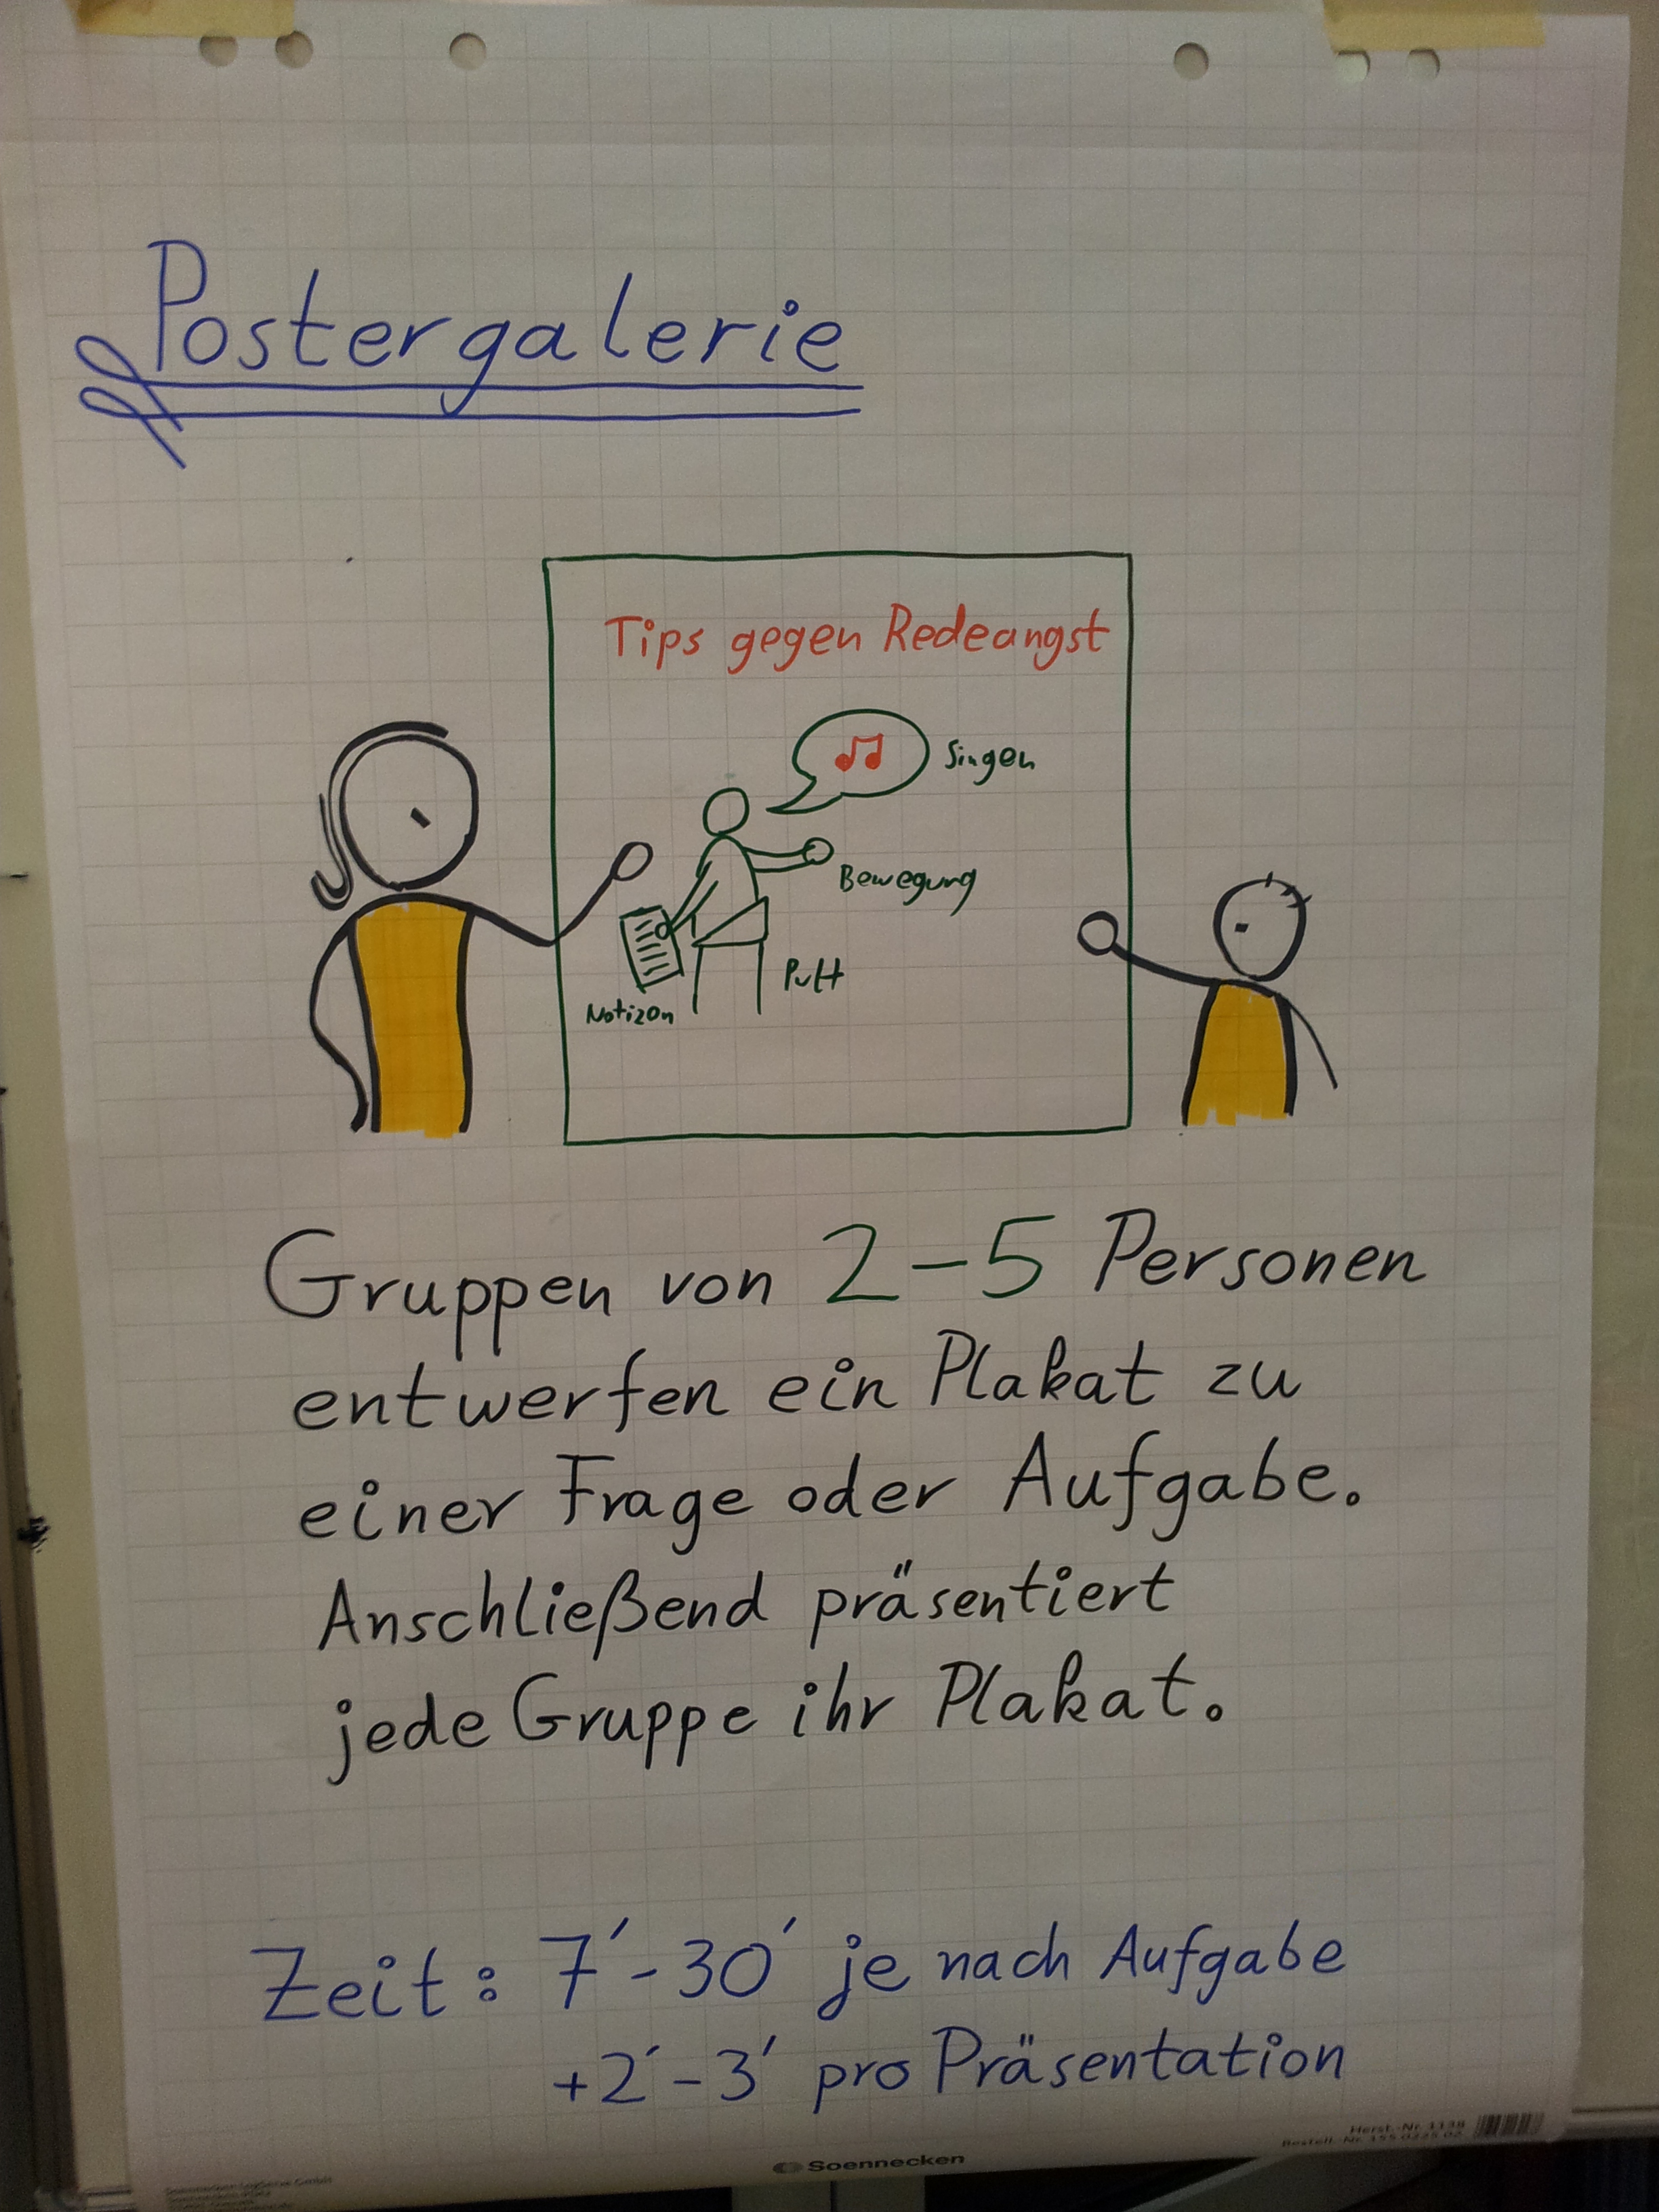 Postergalerie
Tips gegen Redeangst
Singen
Bewegung
Pult
Notizen
Gruppen von 2-5 Personen
entwerfen ein Plakat zu
einer Frage oder Aufgabe.
Anschließend präsentiert
jede Gruppe ihr Plakat.
Zeit: 7'-30' je nach Aufgabe
+2'-3' pro Präsentation
Herst.-Nr. 1138
Soennecken